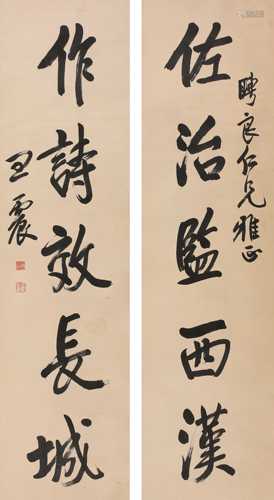 聘良仁兄雅正
佐治監西漢
作詩效長城
王震